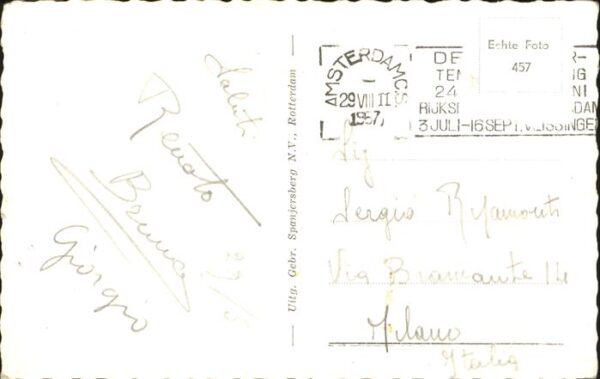 Saluti
Renato
Bruna
Giorgio
29/8
Uitg. Gebr. Spanjersberg N.V., Rotterdam
Echte Foto
457
AMSTERDAM C.S.
29 VIII 11
1957
DE R-
TEN NG
24 NI
RIJKS DAM
3 JULI-16 SEPT. VLISSINGEN
Sig
Sergio
Via Bramante 14
Milano
Italia